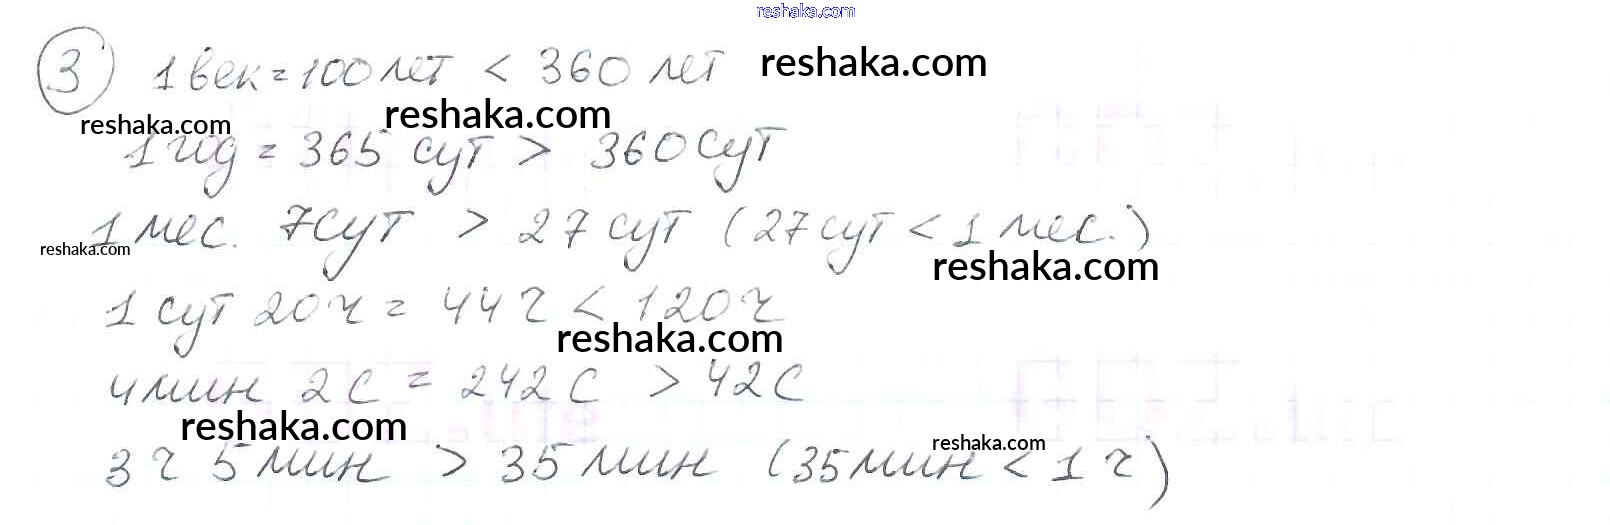 reshaka.com
3 1 век = 100 лет < 360 лет reshaka.com
reshaka.com reshaka.com
1 год = 365 сут > 360 сут
1 мес. 7 сут > 27 сут (27 сут < 1 мес.)
reshaka.com reshaka.com
1 сут 20 ч = 44 ч < 120 ч
reshaka.com
4 мин 2 с = 242 с > 42 с
reshaka.com reshaka.com
3 ч 5 мин > 35 мин (35 мин < 1 ч)